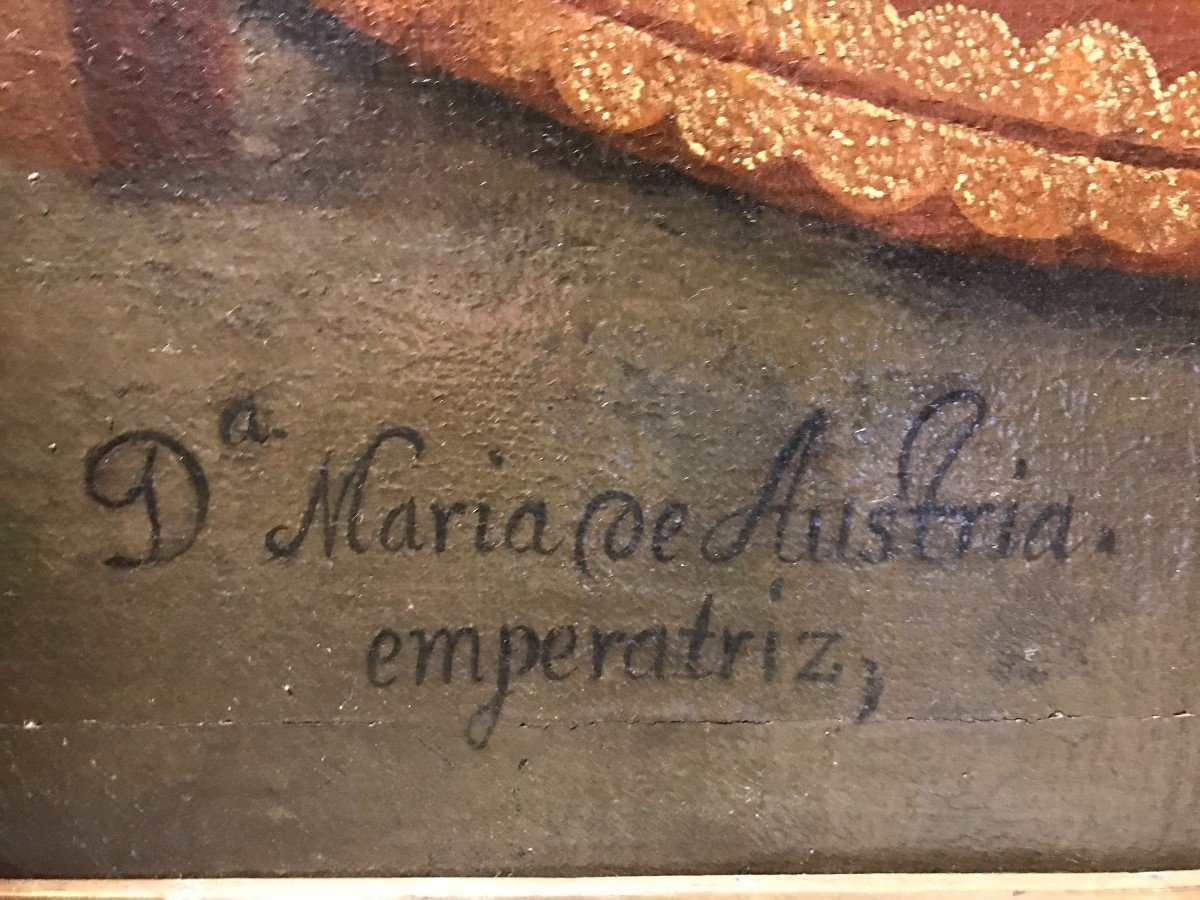 Dª. Maria de Austria.
emperatriz,